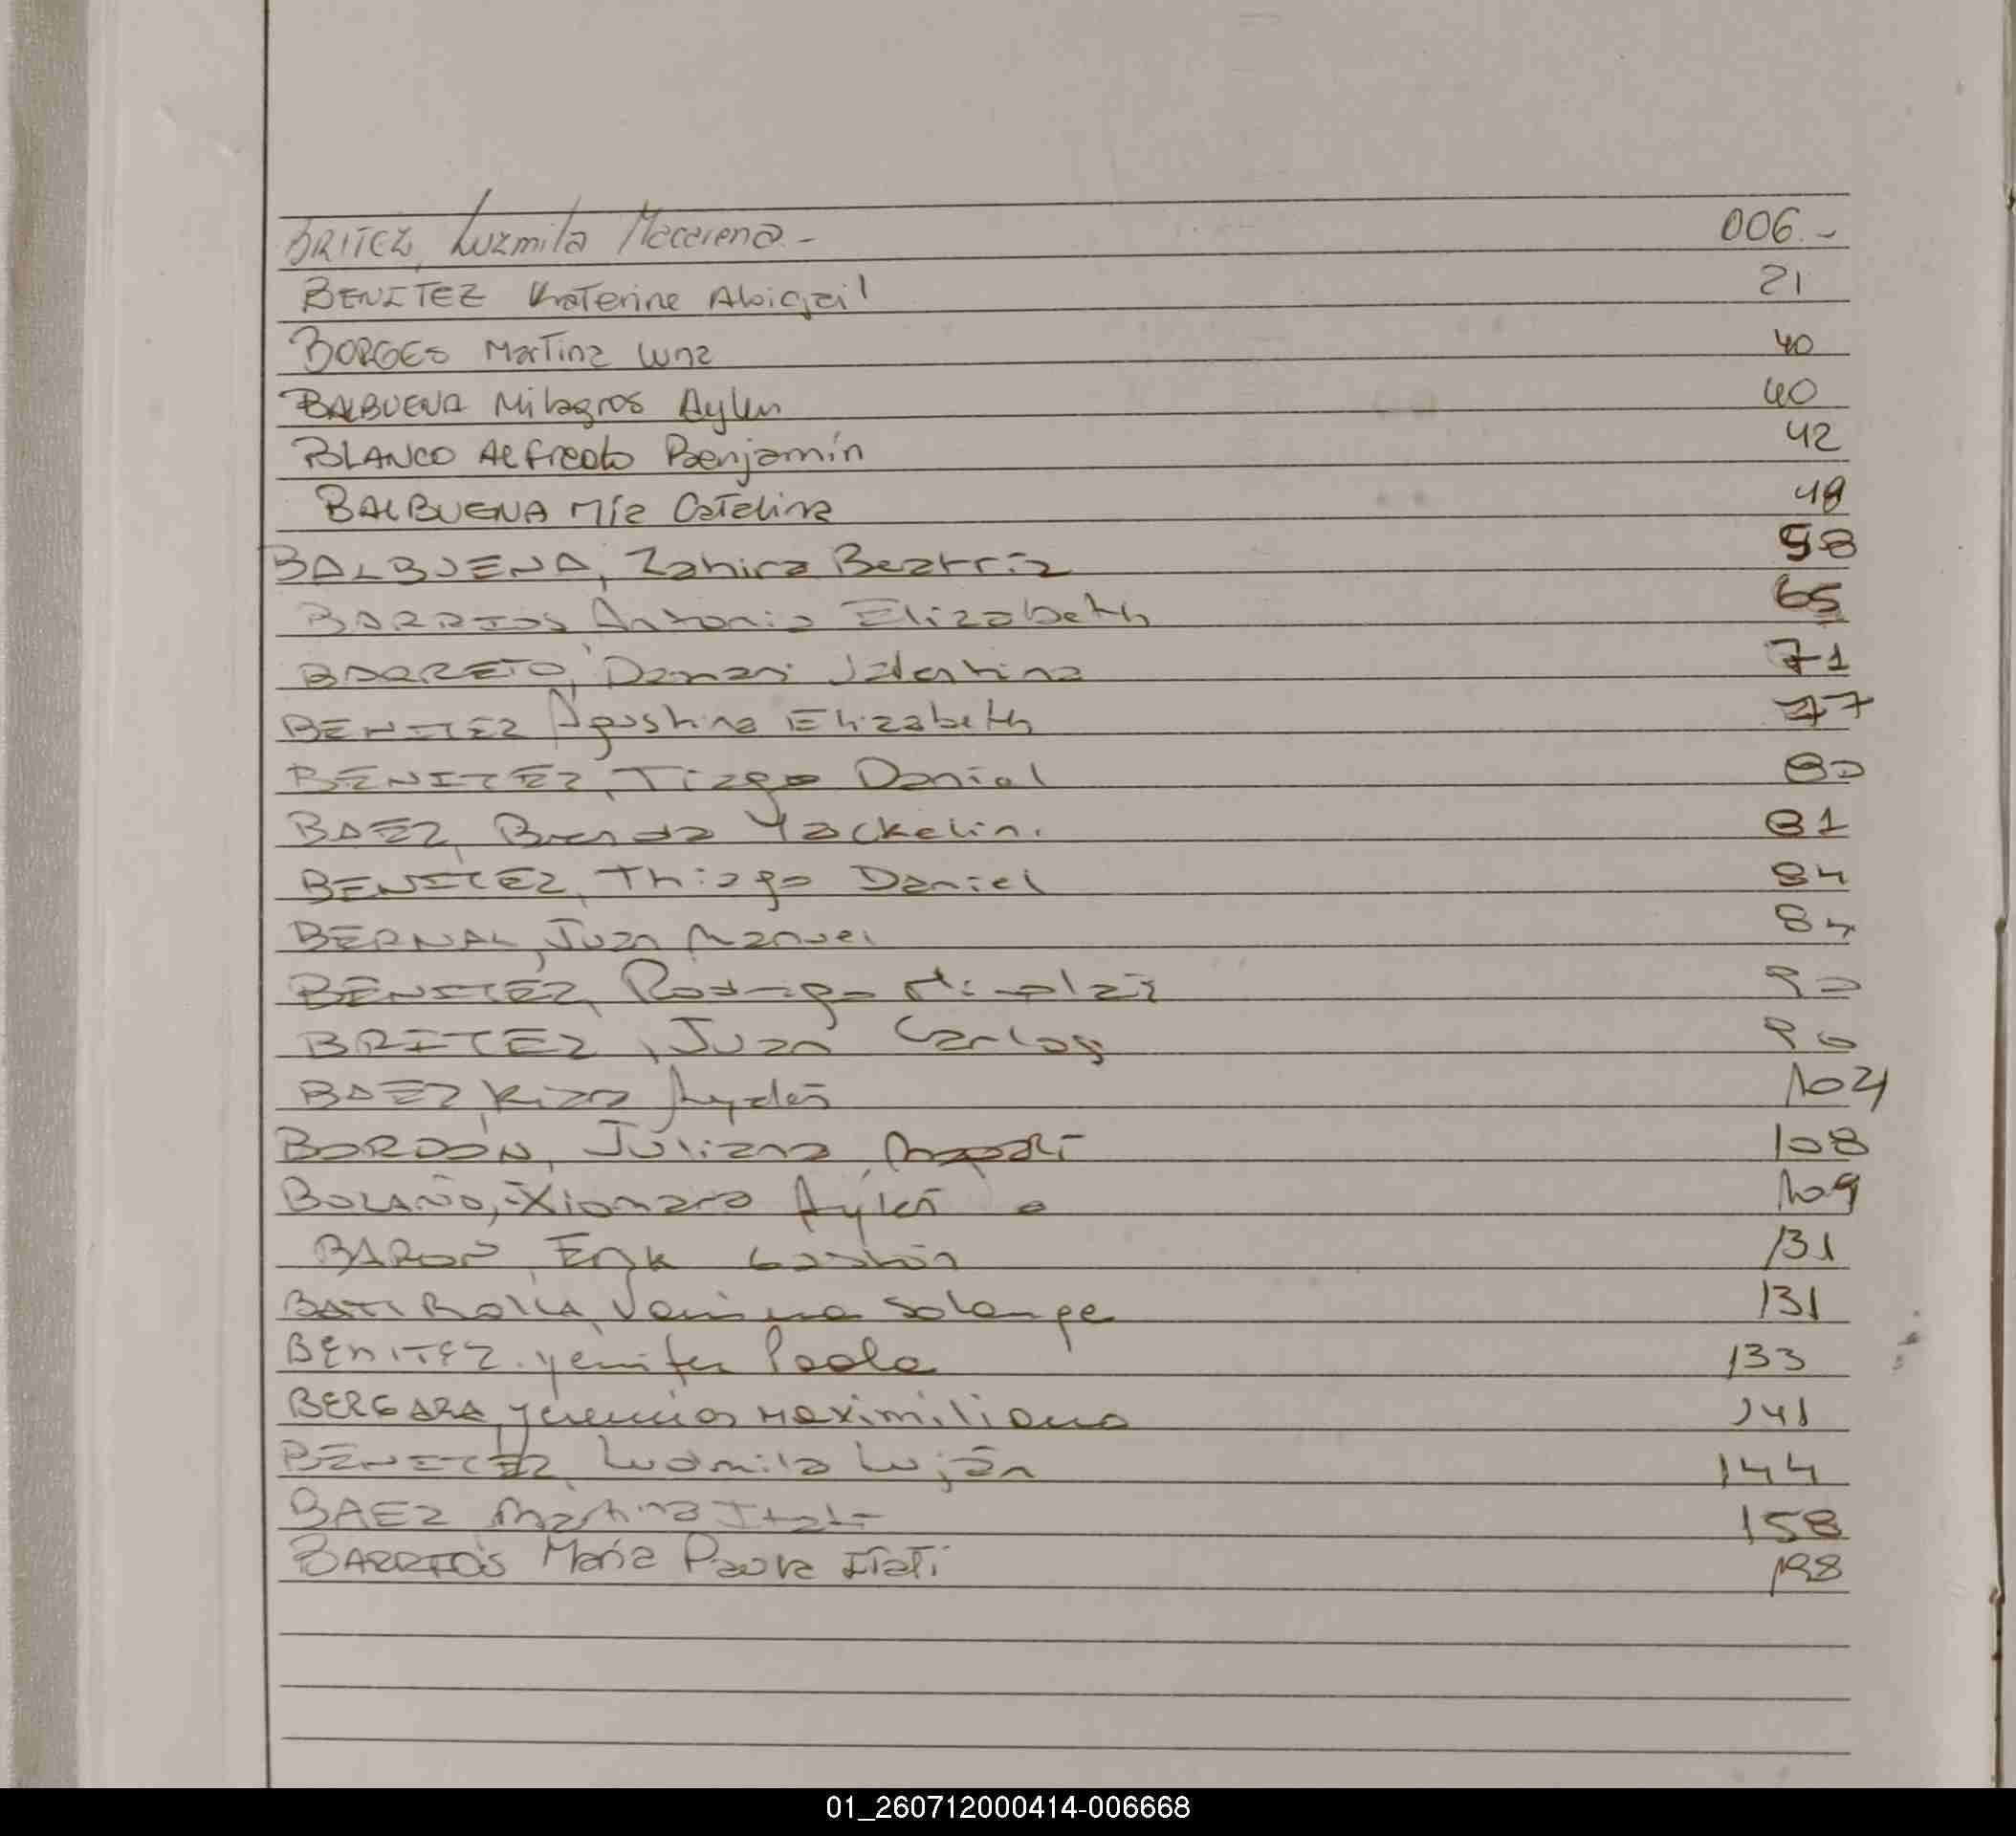 BRITEZ, Luzmila Macarena - 006.-
BENITEZ Katerine Abigail 21
BORGES Martina Luna 40
BALBUENA Milagros Aylen 40
BLANCO Alfredo Benjamín 42
BALBUENA Mía Catalina 48
BALBUENA, Zahira Beatriz 58
BARRIOS Antonia Elizabeth 65
BARRETO, Damari Valentina 71
BENITEZ Agostina Elizabeth 77
BENITEZ, Tiago Daniel 80
BAEZ, Brenda Yackelin. 81
BENITEZ, Thiago Daniel 84
BERNAL, Juan Manuel 84
BENITEZ, Rodrigo Nicolás 90
BRITEZ, Juan Carlos 90
BAEZ, Kiara Aydeé 104
BORDÓN, Juliana 108
BOLAÑO, Xiomara Aylén 109
BARON, Erik Gastón 131
Solange 131
BENITEZ. yenifer Paola 133
BERGARA Maximiliano 141
BENITEZ, Ludmila Luján 144
BAEZ Martina Itatí 158
BARRIOS María Paula Itatí 198
01_260712000414-006668